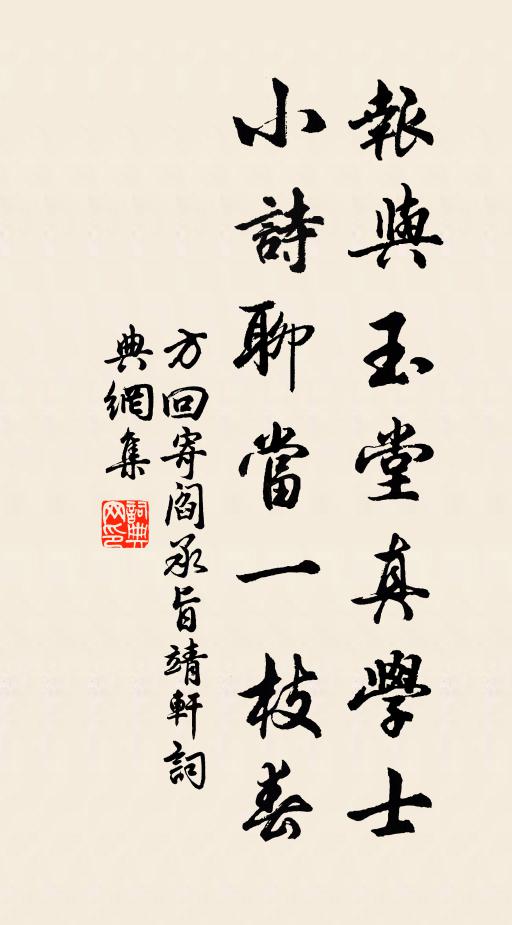 報與玉堂真學士
小詩聊當一枝春
方回寄閻承旨靖軒詞
典網集
詞典
网印